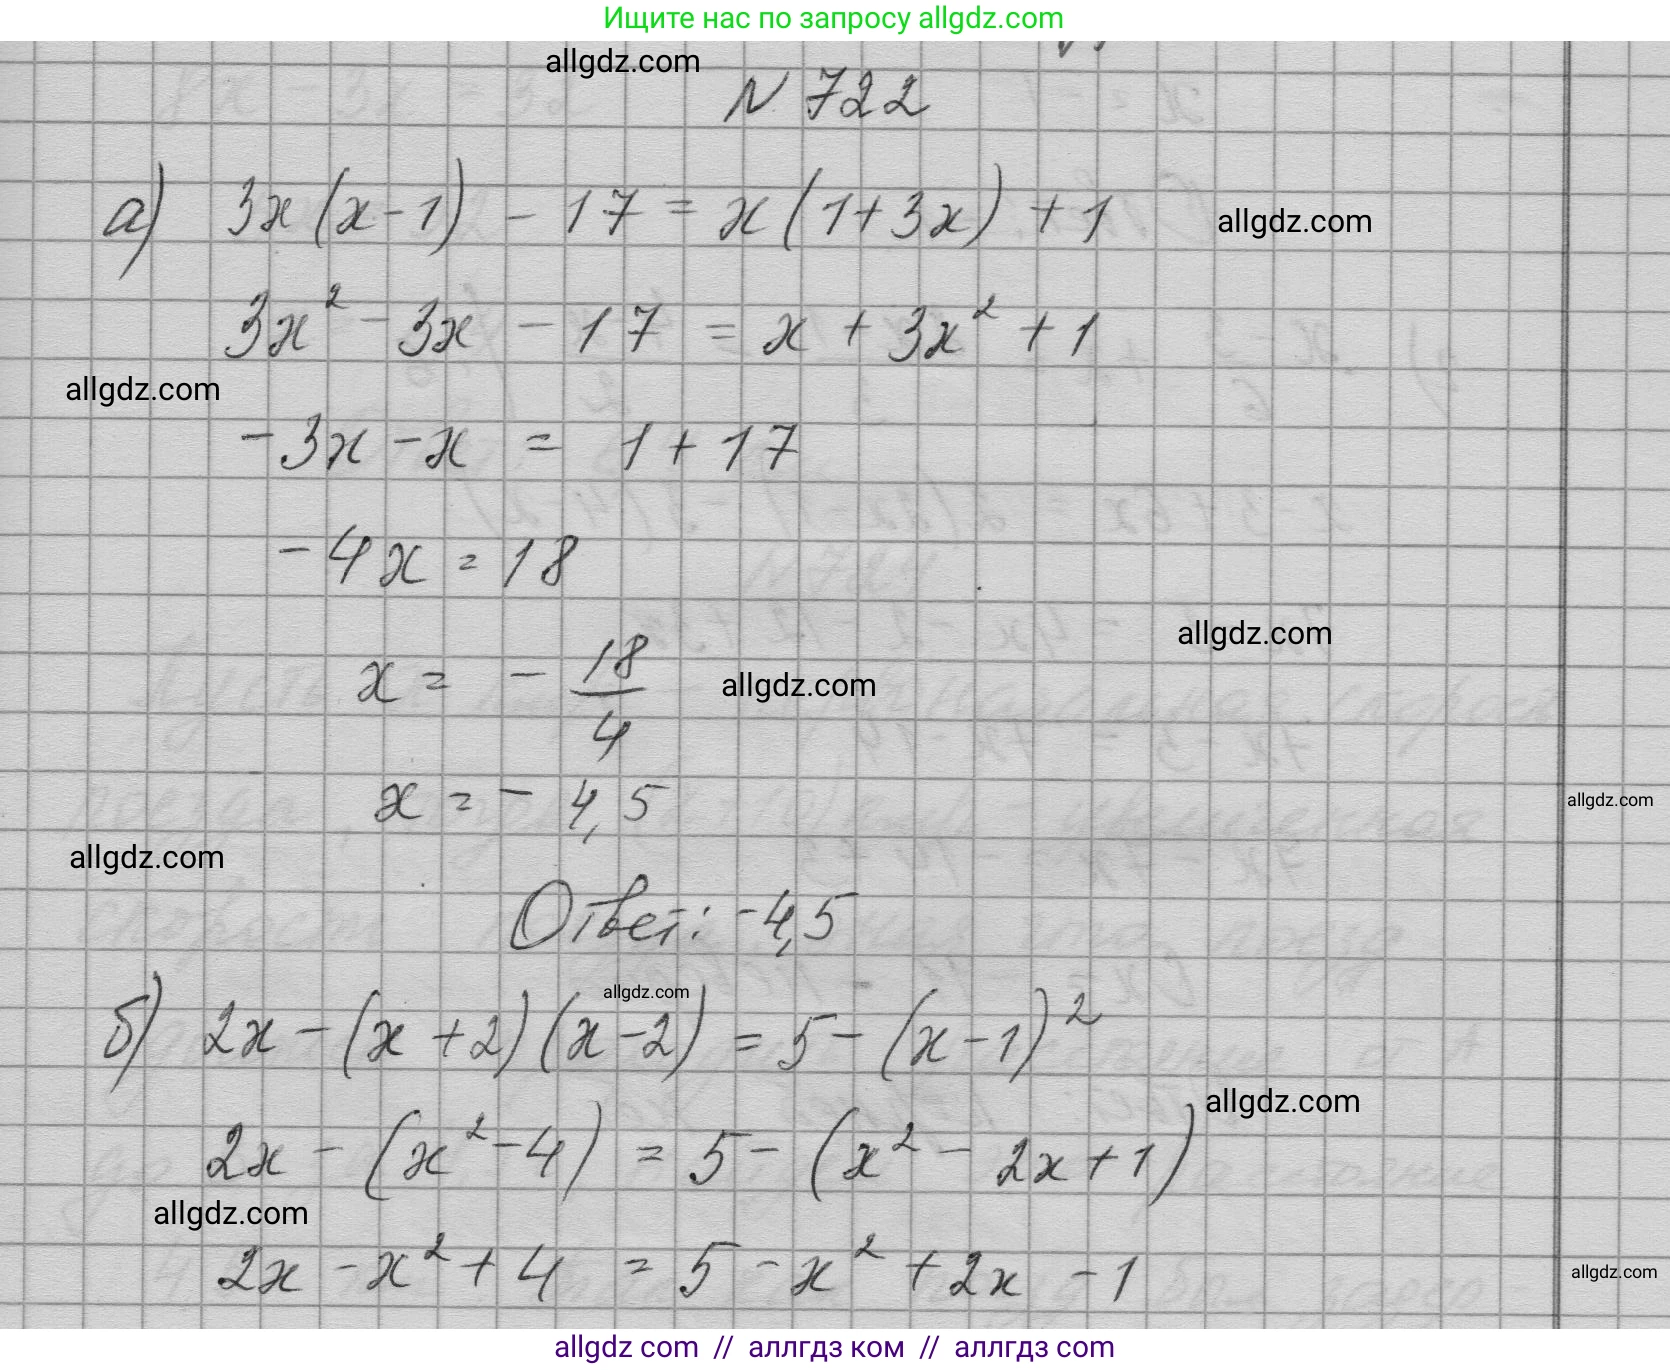 Ищите нас по запросу allgdz.com
allgdz.com
N 722
а) 3x(x-1) - 17 = x(1+3x) + 1
allgdz.com
3x² - 3x - 17 = x + 3x² + 1
allgdz.com
-3x - x = 1 + 17
-4x = 18
allgdz.com
x = - 18/4
allgdz.com
x = - 4,5
allgdz.com
allgdz.com
Ответ: -4,5
allgdz.com
б) 2x - (x+2)(x-2) = 5 - (x-1)²
allgdz.com
2x - (x²-4) = 5 - (x² - 2x + 1)
allgdz.com
2x - x² + 4 = 5 - x² + 2x - 1
allgdz.com
allgdz com // аллгдз ком // аллгдз com